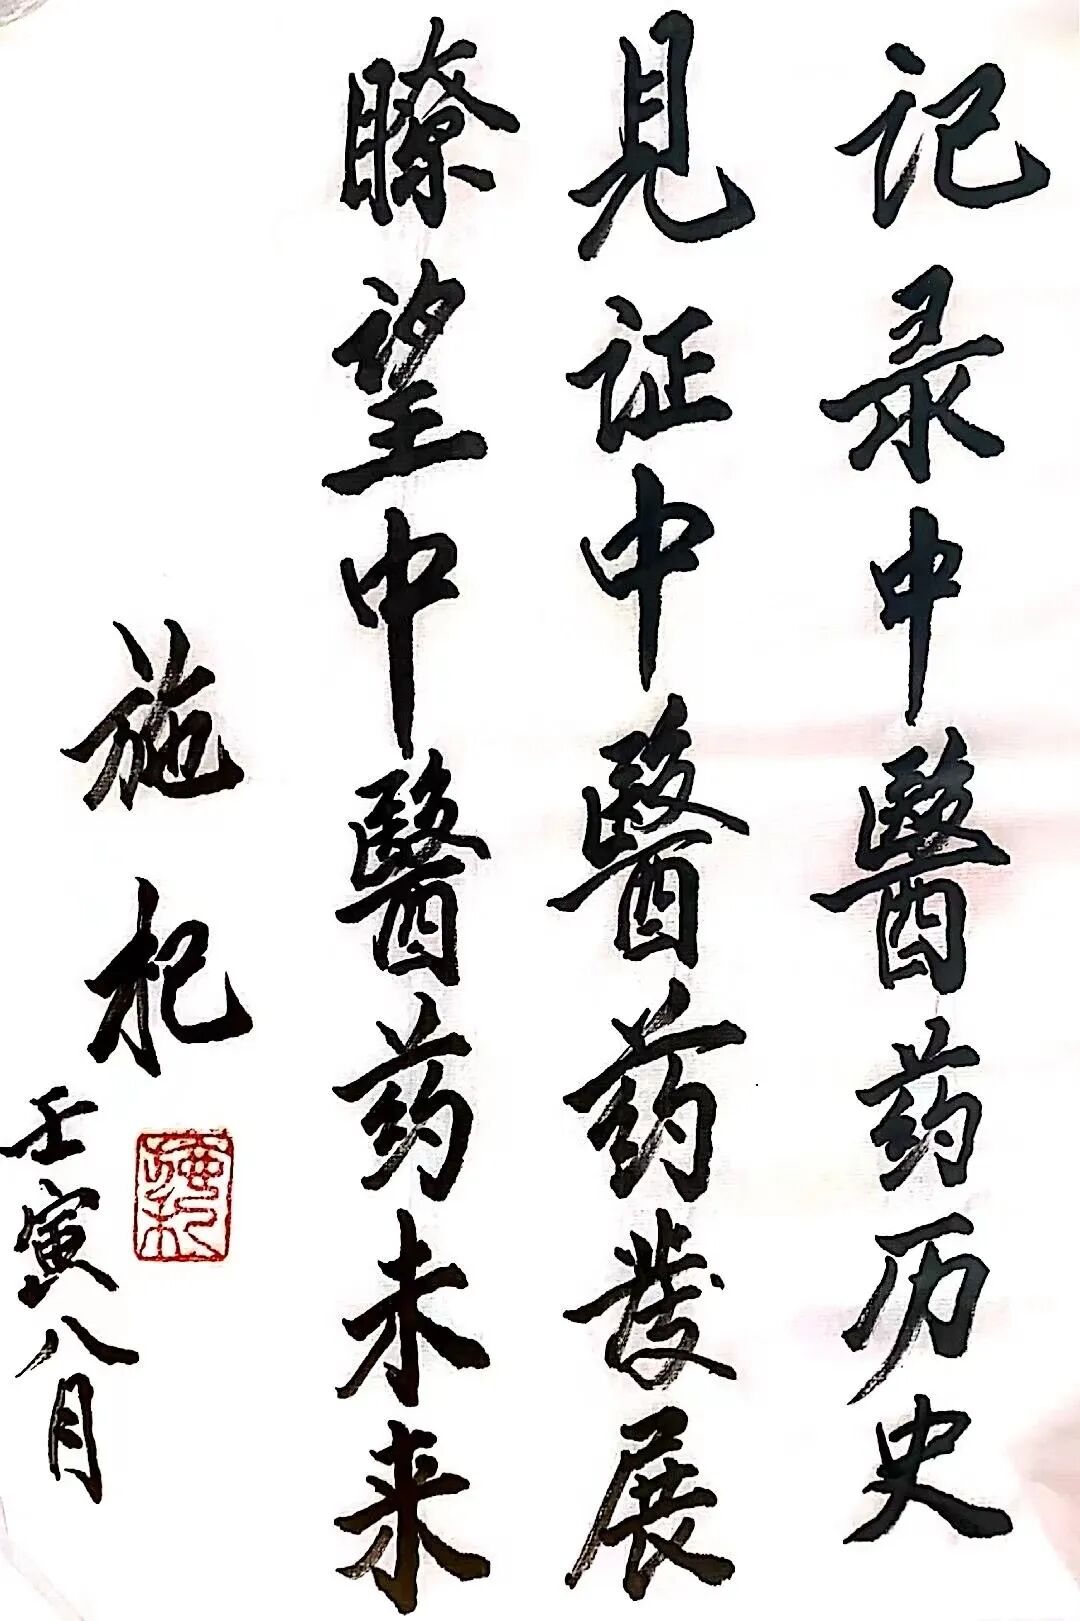 记录中醫药历史
见证中醫药发展
瞭望中醫药未来
施杞
壬寅八月
施杞